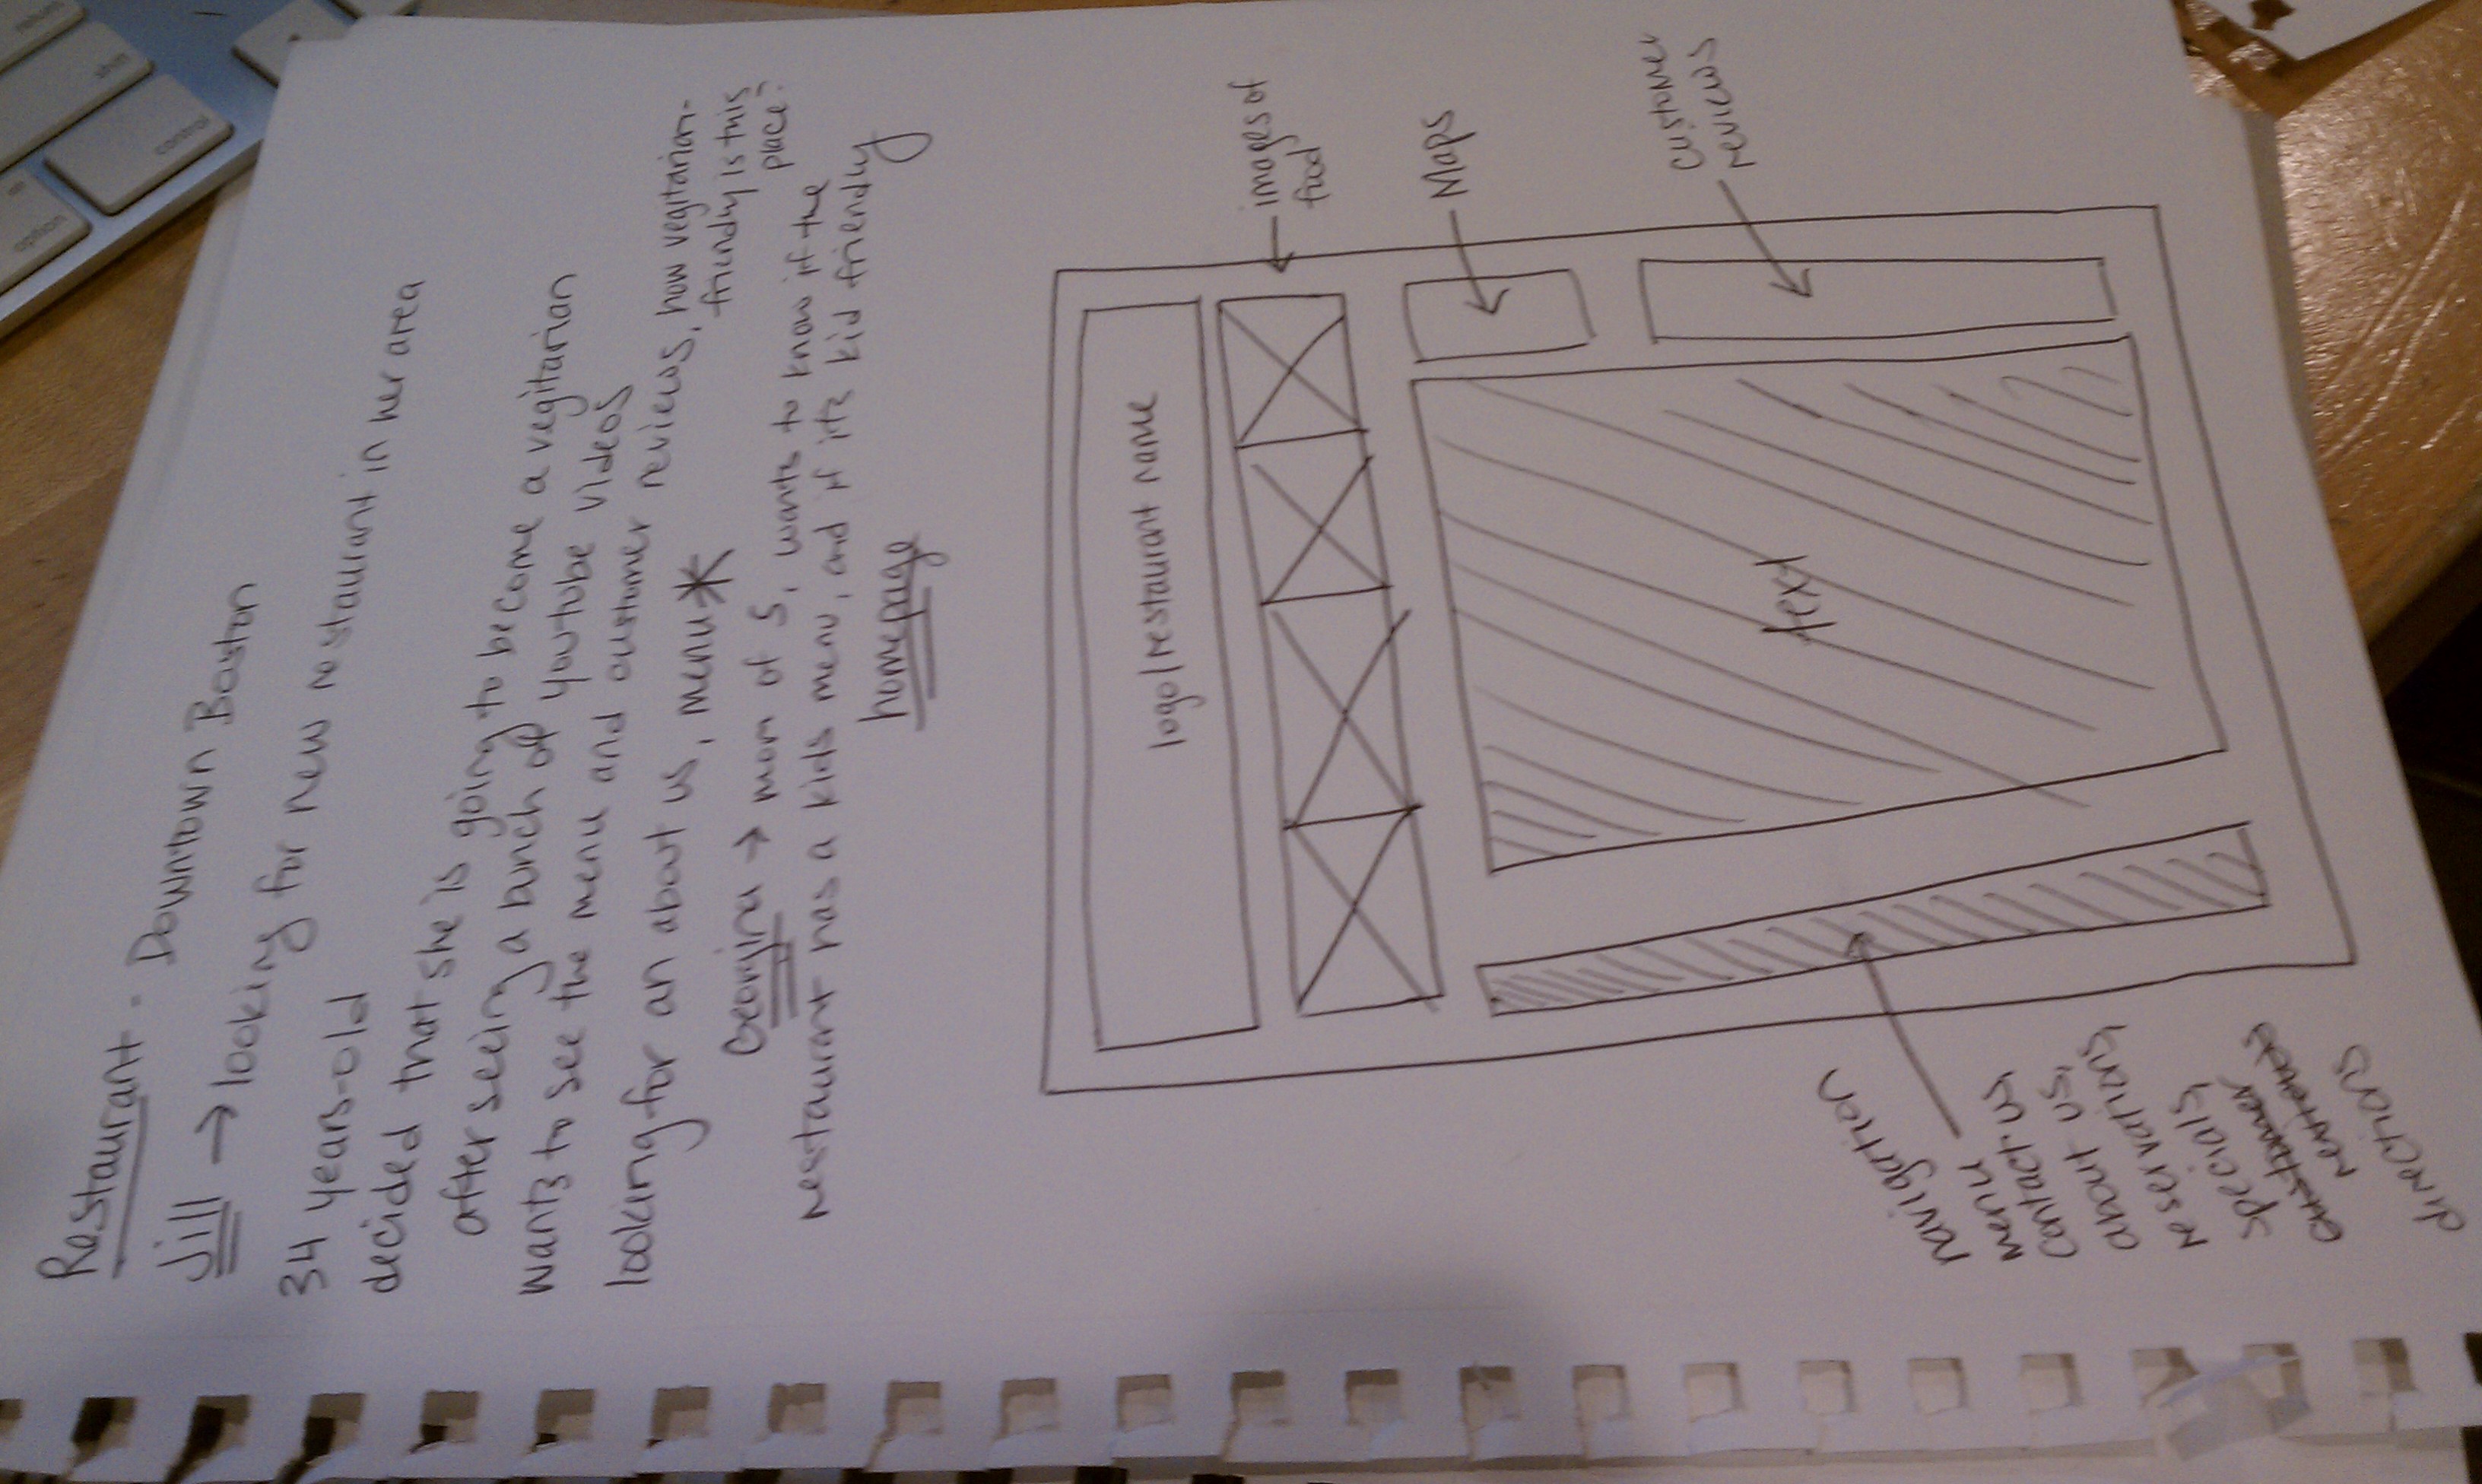 Restaurant - Downtown Boston
Jill → looking for new restaurant in her area
34 years-old
decided that she is going to become a vegitarian
after seeing a bunch of youtube videos
wants to see the menu and customer reviews, how vegitarian-
friendly is this
place?
looking for an about us, menu*
Georgina → mom of 5, wants to know if the
restaurant has a kids menu, and if its kid friendly
homepage
logo/restaurant name
images of
food
Maps
customer
reviews
text
navigation
menu
contact us
about us,
reservations
specials
customer
reviews
directions
option
control
shift
return